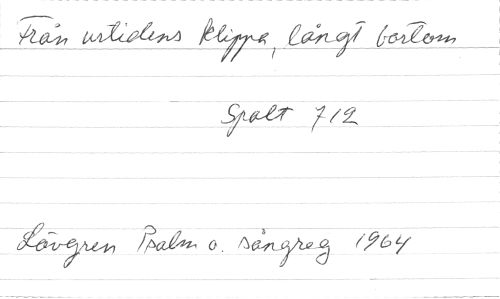 Från urtidens klippa, långt bortom
Spalt 712
Lövgren Psalm o. sångreg 1964